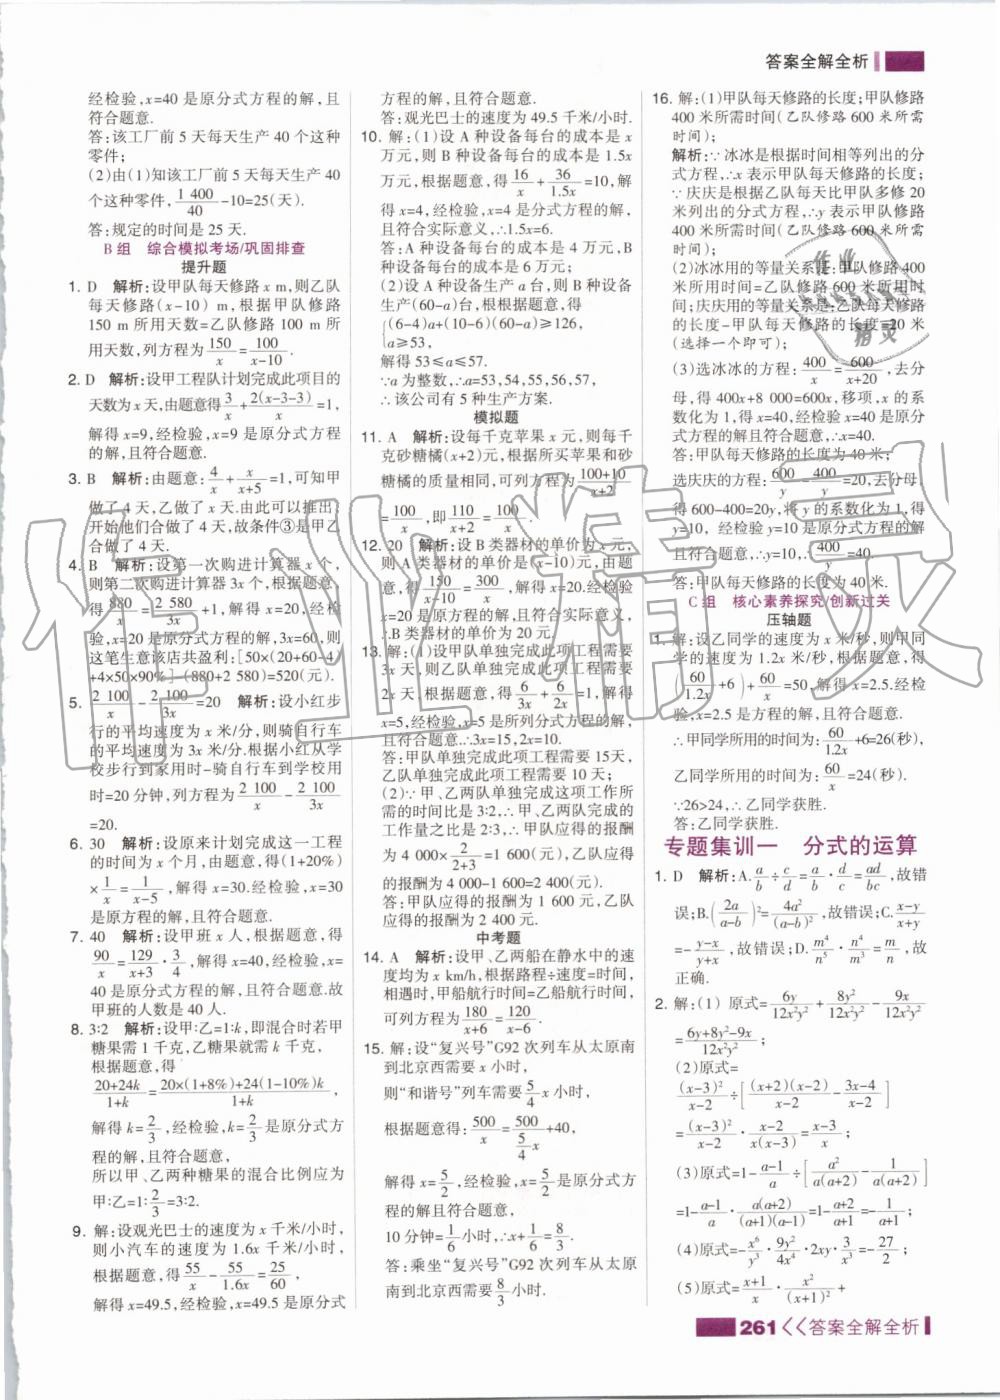 答案全解全析
经检验,x=40 是原分式方程的解,且符合题意.
答:该工厂前 5 天每天生产 40 个这种零件;
(2)由(1)知该工厂前 5 天每天生产 40 个这种零件, 1 400/40 -10=25(天).
答:规定的时间是 25 天.
B 组 综合模拟考场/巩固排查
提升题
1. D 解析:设甲队每天修路 x m,则乙队
每天修路(x-10) m,根据甲队修路
150 m 所用天数=乙队修路 100 m 所
用天数,列方程为 150/x = 100/(x-10) .
2. D 解析:设甲工程队计划完成此项目的
天数为 x 天,由题意得 3/x + 2(x-3-3)/x =1,
解得 x=9,经检验,x=9 是原分式方程
的解,且符合题意.
3. B 解析:由题意: 4/x + x/(x+5) =1,可知甲
做了 4 天,乙做了 x 天.由此可以推出
开始他们合做了 4 天,故条件③是甲乙
合做了 4 天.
4. B 解析:设第一次购进计算器 x 个,
则第二次购进计算器 3x 个,根据题意
得 880/x = 2 580/3x +1,解得 x=20,经检
验,x=20 是原分式方程的解,3x=60,则
这笔生意该店共盈利:[50×(20+60-4)
+4×50×90%]-(880+2 580)=520(元).
5. 2 100/x - 2 100/3x =20 解析:设小红步
行的平均速度为 x 米/分,则骑自行车
的平均速度为 3x 米/分.根据小红从学
校步行到家用时-骑自行车到学校用
时=20 分钟,列方程为 2 100/x - 2 100/3x
=20.
6. 30 解析:设原来计划完成这一工程
的时间为 x 个月,由题意,得(1+20%)
× 1/x = 1/(x-5) ,解得 x=30.经检验,x=30
是原方程的解,且符合题意.
7. 40 解析:设甲班 x 人,根据题意,得
90/x = 129/(x+3) · 3/4 ,解得 x=40,经检验,x=
40 是原分式方程的解,且符合题意.故
甲班的人数是 40 人.
8. 3∶2 解析:设甲∶乙=1∶k,即混合时若甲
糖果需 1 千克,乙糖果就需 k 千克,
根据题意,得
(20+24k)/(1+k) = (20×(1+8%)+24(1-10%)k)/(1+k) ,
解得 k= 2/3 ,经检验,k= 2/3 是原分式方
程的解,且符合题意,
所以甲、乙两种糖果的混合比例应为
甲∶乙=1∶ 2/3 =3∶2.
9. 解:设观光巴士的速度为 x 千米/小时,
则小汽车的速度为 1.6x 千米/小时,
根据题意,得 55/x - 55/1.6x = 25/60 ,
解得 x=49.5,经检验,x=49.5 是原分式
方程的解,且符合题意.
答:观光巴士的速度为 49.5 千米/小时.
10. 解:(1)设 A 种设备每台的成本是 x
万元,则 B 种设备每台的成本是 1.5x
万元,根据题意,得 16/x + 36/1.5x =10,解
得 x=4,经检验,x=4 是分式方程的解,
且符合实际意义,∴1.5x=6.
答:A 种设备每台的成本是 4 万元,B 种
设备每台的成本是 6 万元;
(2)设 A 种设备生产 a 台,则 B 种设备
生产(60-a)台,根据题意,得
{(6-4)a+(10-6)(60-a)≥126,
a≥53,
解得 53≤a≤57.
∵a 为整数,∴a=53,54,55,56,57,
∴该公司有 5 种生产方案.
模拟题
11. A 解析:设每千克苹果 x 元,则每千
克砂糖橘(x+2)元,根据所买苹果和砂
糖橘的质量相同,可列方程为 (100+10)/(x+2)
= 100/x ,即 110/(x+2) = 100/x .
12. 20 解析:设 B 类器材的单价为 x 元,
则 A 类器材的单价是(x-10)元,由题
意,得 150/(x-10) = 300/x ,解得 x=20.经检验
x=20 是原方程的解,且符合实际意义,
∴B 类器材的单价为 20 元.
13. 解:(1)设甲队单独完成此项工程需要
3x 天,则乙队单独完成此项工程需要
2x 天,根据题意,得 6/3x + 6/2x =1,解得
x=5,经检验,x=5 是所列分式方程的解,
且符合题意.∴3x=15,2x=10.
答:甲队单独完成此项工程需要 15天,
乙队单独完成此项工程需要 10 天;
(2)∵甲、乙两队单独完成这项工作所
需的时间比是 3∶2,∴甲、乙两队完成的
工作量之比是 2∶3,∴甲队应得的报酬
为 4 000× 2/(2+3) =1 600(元),乙队应得
的报酬为 4 000-1 600=2 400(元).
答:甲队应得的报酬为 1 600 元,乙队
应得的报酬为 2 400 元.
中考题
14. A 解析:设甲、乙两船在静水中的速
度均为 x km/h,根据路程÷速度=时间,
相遇时,甲船航行时间=乙船航行时间,
可列方程为 180/(x+6) = 120/(x-6) .
15. 解:设“复兴号”G92 次列车从太原南
到北京西需要 x 小时,
则“和谐号”列车需要 5/4 x 小时,
根据题意得: 500/x = 500/(5/4 x) +40,
解得 x= 5/2 ,经检验,x= 5/2 是原方程的
解且符合题意,
10 分钟= 1/6 小时,∴x+ 1/6 = 8/3 .
答:乘坐“复兴号”G92 次列车从太原南
到北京西需要 8/3 小时.
16. 解:(1)甲队每天修路的长度;甲队修路
400 米所需时间(乙队修路 600 米所需
时间);
解析:∵冰冰是根据时间相等列出的分
式方程,∴x 表示甲队每天修路的长度;
∵庆庆是根据乙队每天比甲队多修 20
米列出的分式方程,∴y 表示甲队修路
400 米所需时间(乙队修路 600 米所需
时间).
(2)冰冰用的等量关系是:甲队修路 400
米所用时间=乙队修路 600 米所用时
间;庆庆用的等量关系是:乙队每天修路
的长度-甲队每天修路的长度=20 米
(选择一个即可);
(3)选冰冰的方程: 400/x = 600/(x+20) ,去分
母,得 400x+8 000=600x,移项,x 的系
数化为 1,得 x=40,经检验 x=40 是原分
式方程的解且符合题意,∴x=40.
答:甲队每天修路的长度为 40 米;
选庆庆的方程: 600/y - 400/y =20,去分母,
得 600-400=20y,将 y 的系数化为 1,得
y=10, 经检验 y=10 是原分式方程的解
且符合题意,∴y=10,∴ 400/y =40.
答:甲队每天修路的长度为 40 米.
C 组 核心素养探究/创新过关
压轴题
1. 解:设乙同学的速度为 x 米/秒,则甲同
学的速度为 1.2x 米/秒,根据题意,得
( 60/1.2x +6 )+ 60/x =50,解得 x=2.5.经检
验,x=2.5 是方程的解,且符合题意.
∴甲同学所用的时间为: 60/1.2x +6=26(秒),
乙同学所用的时间为: 60/x =24(秒).
∵26>24,∴乙同学获胜.
答:乙同学获胜.
专题集训一 分式的运算
1. D 解析:A. a/b ÷ c/d = a/b · d/c = ad/bc ,故错
误;B.( 2a/(a-b) )²= 4a²/(a-b)² ,故错误;C. (x-y)/(x+y)
=- (y-x)/(y+x) ,故错误;D. m⁴/n⁵ · n⁴/m³ = m/n ,故
正确.
2. 解:(1) 原式= 6y/12x²y² + 8y²/12x²y² - 9x/12x²y²
= (6y+8y²-9x)/12x²y² ;
(2)原式=
(x-3)²/(x-2) ÷[ (x+2)(x-2)/(x-2) - (3x-4)/(x-2) ]
= (x-3)²/(x-2) · (x-2)/x(x-3) = (x-3)/x ;
(3)原式=1- (a-1)/a ÷[ a²/a(a+2) - 1/a(a+2) ]
=1- (a-1)/a · a(a+2)/(a+1)(a-1) =1- (a+2)/(a+1) =- 1/(a+1) ;
(4)原式=- x⁶/y³ · 9y²/4x⁴ ·2xy· 3/x³ =- 27/2 ;
(5)原式= (x+1)/x · x²/(x+1)² +
261<<答案全解全析